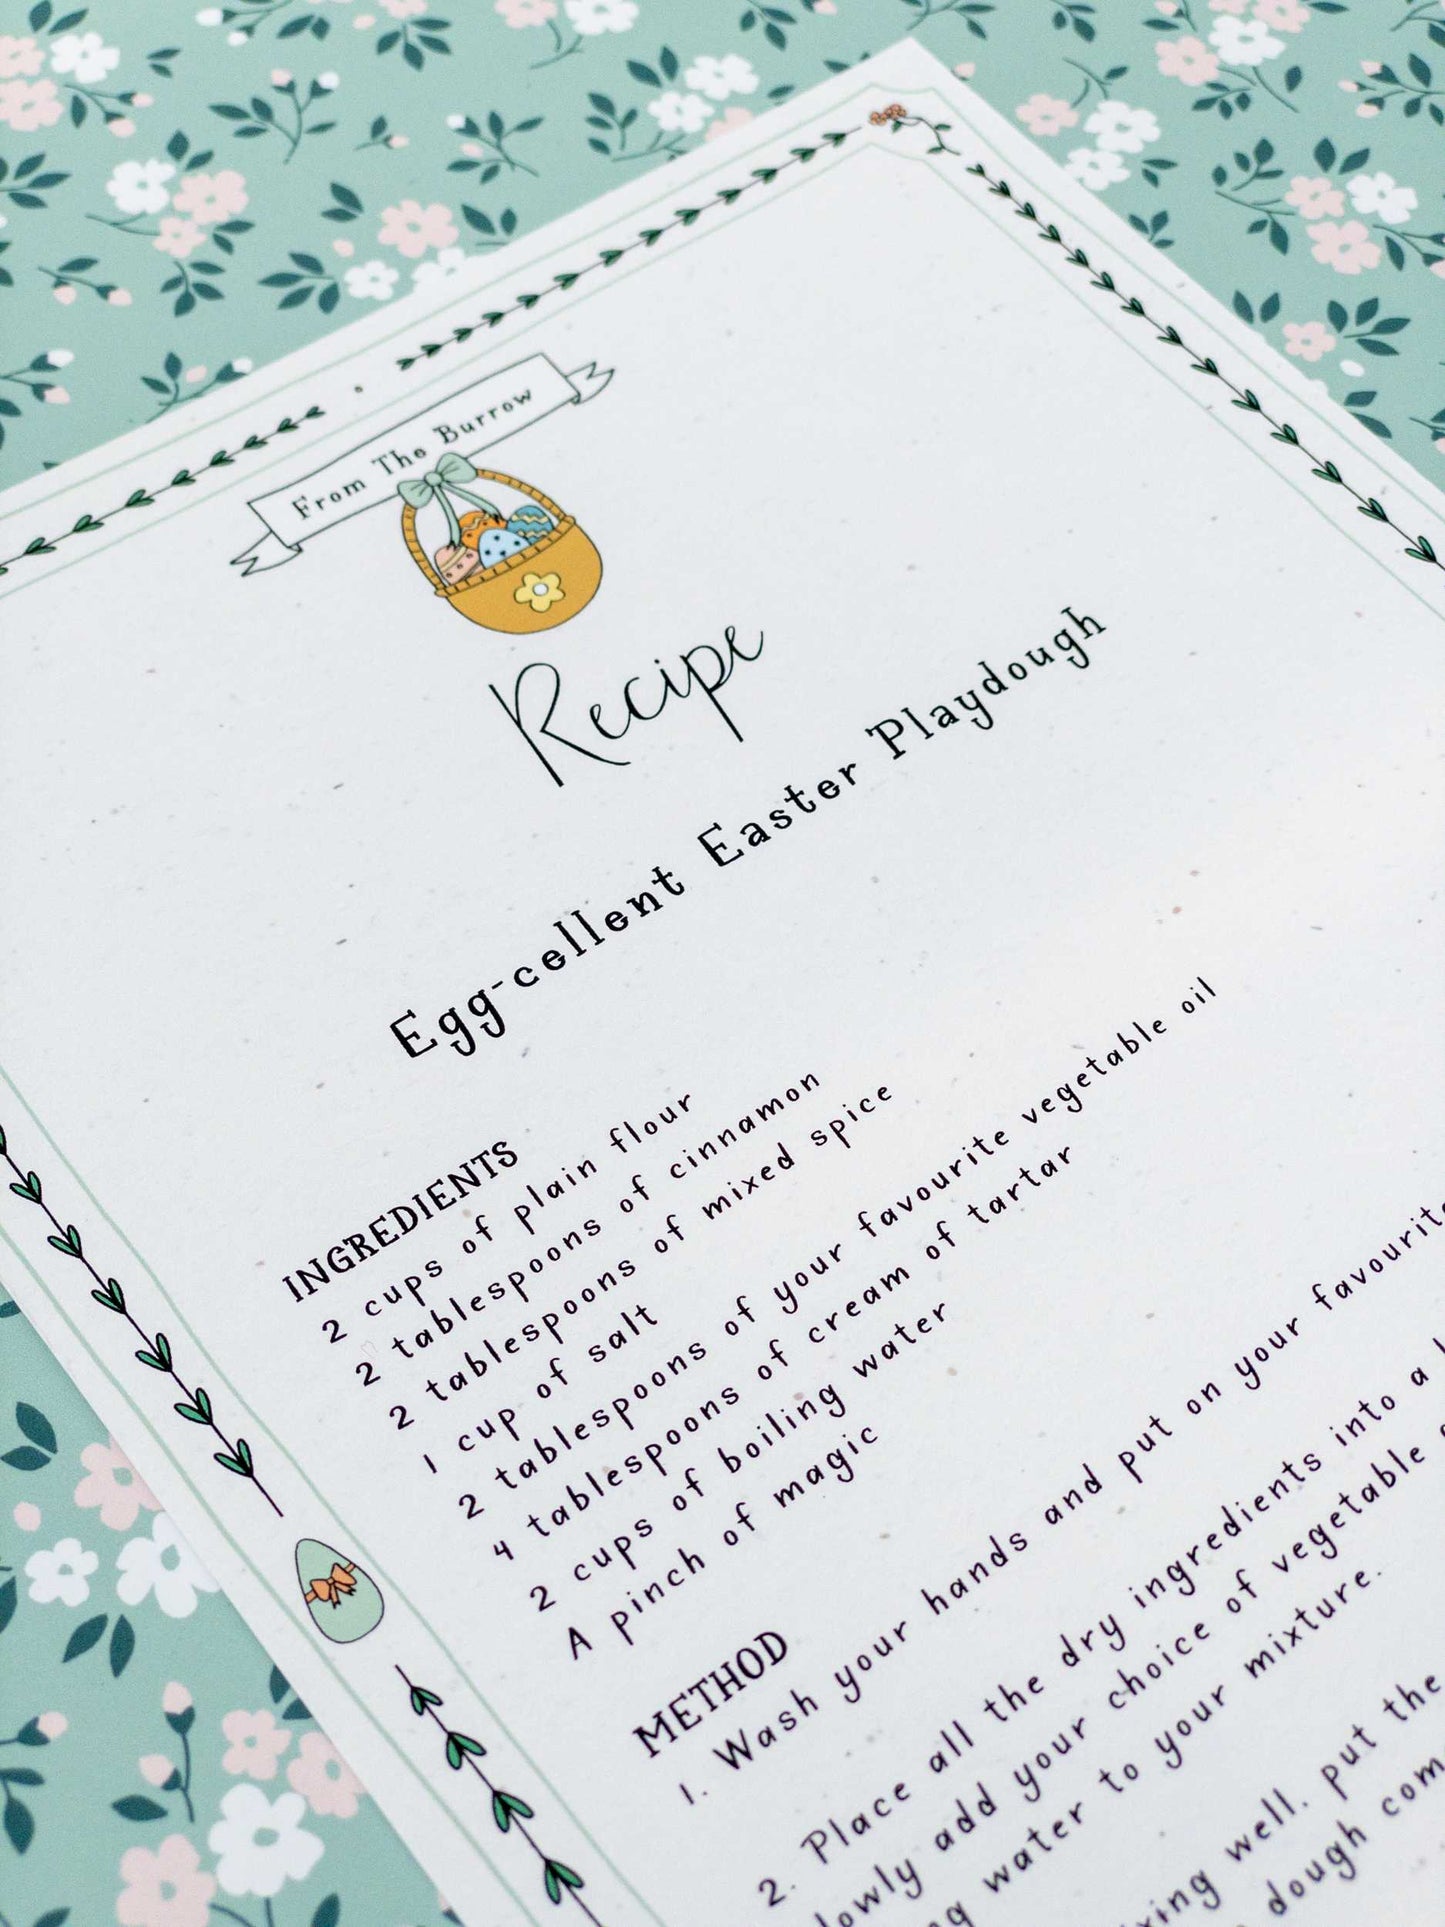 From The Burrow
Recipe
Egg-cellent Easter Playdough
INGREDIENTS
2 cups of plain flour
2 tablespoons of cinnamon
2 tablespoons of mixed spice
1 cup of salt
2 tablespoons of your favourite vegetable oil
4 tablespoons of cream of tartar
2 cups of boiling water
A pinch of magic
METHOD
1. Wash your hands and put on your favourite
2. Place all the dry ingredients into a
add your choice of vegetable
water to your mixture.
well. put the
dough